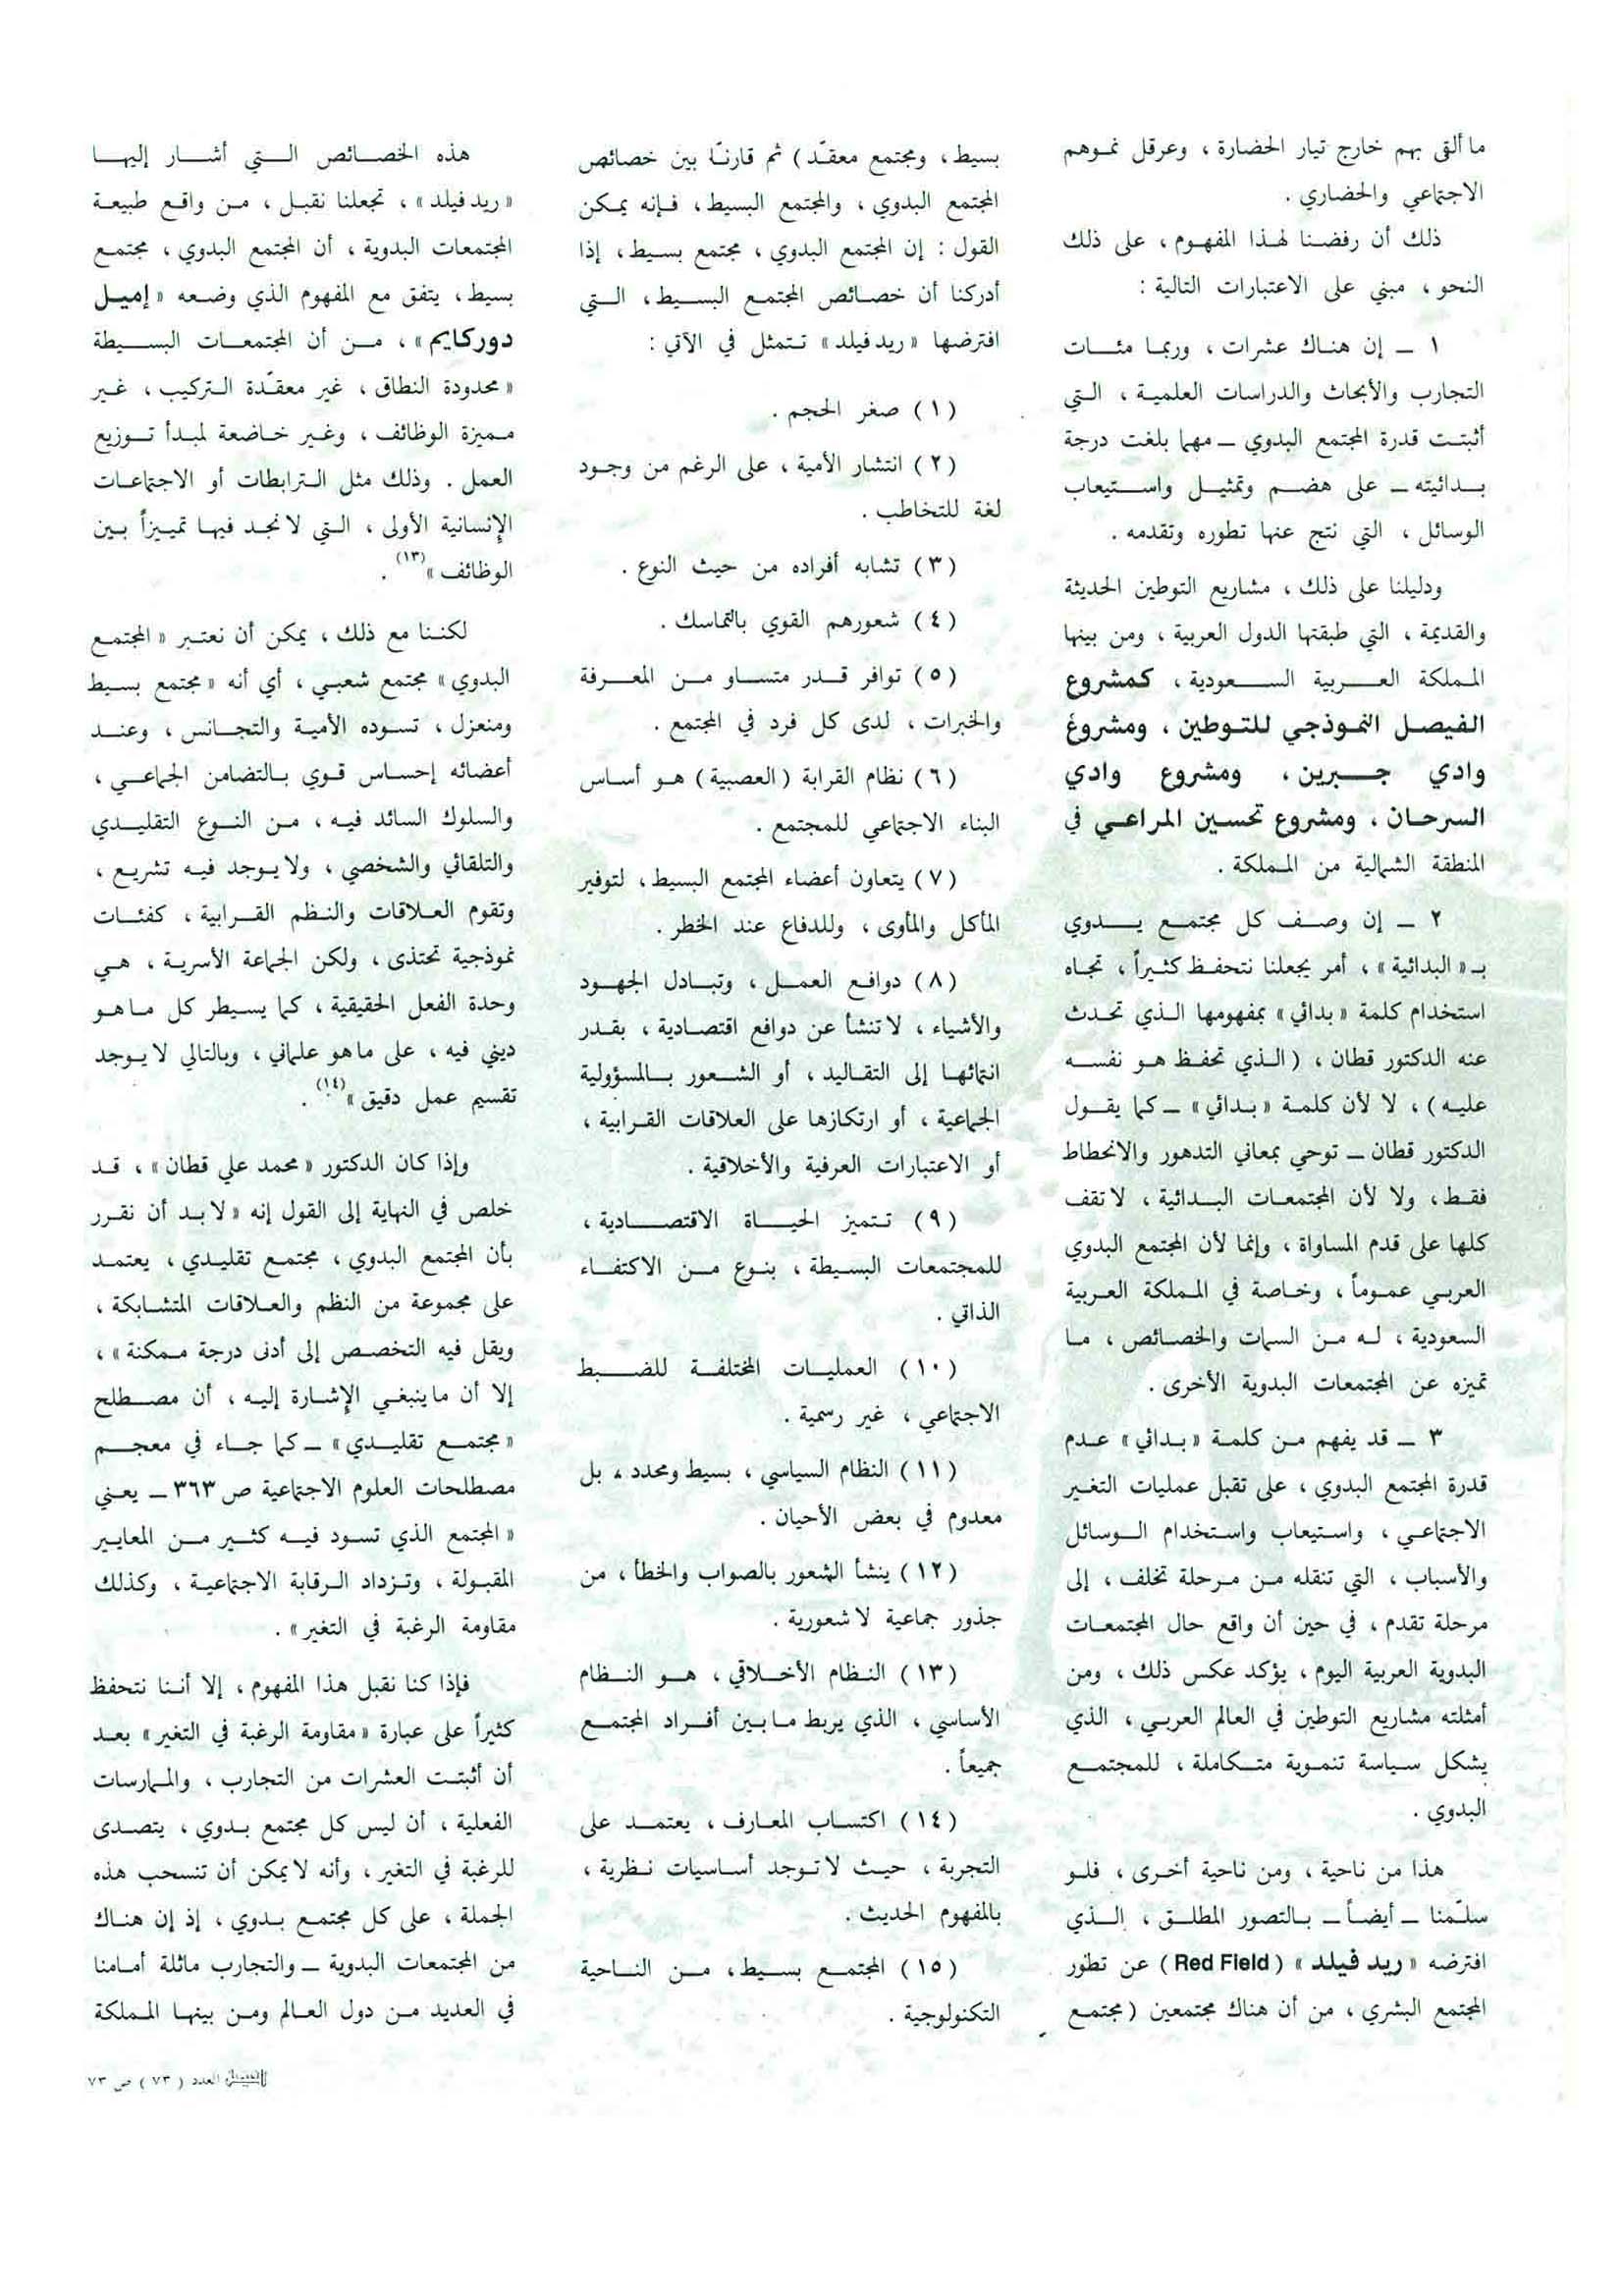 ما ألقى بهم خارج تيار الحضارة ، وعرقل نموهم
الاجتماعي والحضاري .
ذلك أن رفضنا لهذا المفهوم ، على ذلك
النحو ، مبني على الاعتبارات التالية :
١ ــ إن هناك عشرات ، وربما مئات
التجارب والأبحاث والدراسات العلمية ، التي
أثبتت قدرة المجتمع البدوي ــ مهما بلغت درجة
بدائيته ــ على هضم وتمثيل واستيعاب
الوسائل ، التي نتج عنها تطوره وتقدمه .
ودليلنا على ذلك ، مشاريع التوطين الحديثة
والقديمة ، التي طبقتها الدول العربية ، ومن بينها
المملكة العربية السعودية ، كمشروع
الفيصل النموذجي للتوطين ، ومشروع
وادي جبرين ، ومشروع وادي
السرحان ، ومشروع تحسين المراعي في
المنطقة الشمالية من المملكة .
٢ ــ إن وصف كل مجتمع بدوي
بـ « البدائية » ، أمر يجعلنا نتحفظ كثيراً ، تجاه
استخدام كلمة « بدائي » بمفهومها الذي تحدث
عنه الدكتور قطان ، ( الذي تحفظ هو نفسه
عليه ) ، لا لأن كلمة « بدائي » ــ كما يقول
الدكتور قطان ــ توحي بمعاني التدهور والانحطاط
فقط ، ولا لأن المجتمعات البدائية ، لا تقف
كلها على قدم المساواة ، وإنما لأن المجتمع البدوي
العربي عموماً ، وخاصة في المملكة العربية
السعودية ، له من السمات والخصائص ، ما
تميزه عن المجتمعات البدوية الأخرى .
٣ ــ قد يفهم من كلمة « بدائي » عدم
قدرة المجتمع البدوي ، على تقبل عمليات التغير
الاجتماعي ، واستيعاب واستخدام الوسائل
والأسباب ، التي تنقله من مرحلة تخلف ، إلى
مرحلة تقدم ، في حين أن واقع حال المجتمعات
البدوية العربية اليوم ، يؤكد عكس ذلك ، ومن
أمثلته مشاريع التوطين في العالم العربي ، الذي
يشكل سياسة تنموية متكاملة ، للمجتمع
البدوي .
هذا من ناحية ، ومن ناحية أخرى ، فلو
سلّمنا ــ أيضاً ــ بالتصور المطلق ، الذي
افترضه « ريد فيلد » ( Red Field ) عن تطور
المجتمع البشري ، من أن هناك مجتمعين ( مجتمع
بسيط ، ومجتمع معقّد ) ثم قارنّا بين خصائص
المجتمع البدوي ، والمجتمع البسيط ، فإنه يمكن
القول : إن المجتمع البدوي ، مجتمع بسيط ، إذا
أدركنا أن خصائص المجتمع البسيط ، التي
افترضها « ريد فيلد » تتمثل في الآتي :
( ١ ) صغر الحجم .
( ٢ ) انتشار الأمية ، على الرغم من وجود
لغة للتخاطب .
( ٣ ) تشابه أفراده من حيث النوع .
( ٤ ) شعورهم القوي بالتماسك .
( ٥ ) توافر قدر متساو من المعرفة
والخبرات ، لدى كل فرد في المجتمع .
( ٦ ) نظام القرابة ( العصبية ) هو أساس
البناء الاجتماعي للمجتمع .
( ٧ ) يتعاون أعضاء المجتمع البسيط ، لتوفير
المأكل والمأوى ، وللدفاع عند الخطر .
( ٨ ) دوافع العمل ، وتبادل الجهود
والأشياء ، لا تنشأ عن دوافع اقتصادية ، بقدر
انتمائها إلى التقاليد ، أو الشعور بالمسؤولية
الجماعية ، أو ارتكازها على العلاقات القرابية ،
أو الاعتبارات العرفية والأخلاقية .
( ٩ ) تتميز الحياة الاقتصادية ،
للمجتمعات البسيطة ، بنوع من الاكتفاء
الذاتي .
( ١٠ ) العمليات المختلفة للضبط
الاجتماعي ، غير رسمية .
( ١١ ) النظام السياسي ، بسيط ومحدد ، بل
معدوم في بعض الأحيان .
( ١٢ ) ينشأ الشعور بالصواب والخطأ ، من
جذور جماعية لا شعورية .
( ١٣ ) النظام الأخلاقي ، هو النظام
الأساسي ، الذي يربط ما بين أفراد المجتمع
جميعاً .
( ١٤ ) اكتساب المعارف ، يعتمد على
التجربة ، حيث لا توجد أساسيات نظرية ،
بالمفهوم الحديث .
( ١٥ ) المجتمع بسيط ، من الناحية
التكنولوجية .
هذه الخصائص التي أشار إليها
« ريد فيلد » ، تجعلنا نقبل ، من واقع طبيعة
المجتمعات البدوية ، أن المجتمع البدوي ، مجتمع
بسيط ، يتفق مع المفهوم الذي وضعه « إميل
دوركايم » ، من أن المجتمعات البسيطة
« محدودة النطاق ، غير معقّدة التركيب ، غير
مميزة الوظائف ، وغير خاضعة لمبدأ توزيع
العمل . وذلك مثل الترابطات أو الاجتماعات
الإنسانية الأولى ، التي لا نجد فيها تمييزاً بين
الوظائف » (١٣) .
لكننا مع ذلك ، يمكن أن نعتبر « المجتمع
البدوي » مجتمع شعبي ، أي أنه « مجتمع بسيط
ومنعزل ، تسوده الأمية والتجانس ، وعند
أعضائه إحساس قوي بالتضامن الجماعي ،
والسلوك السائد فيه ، من النوع التقليدي
والتلقائي والشخصي ، ولا يوجد فيه تشريع ،
وتقوم العلاقات والنظم القرابية ، كفئات
نموذجية تحتذى ، ولكن الجماعة الأسرية ، هي
وحدة الفعل الحقيقية ، كما يسيطر كل ما هو
ديني فيه ، على ما هو علماني ، وبالتالي لا يوجد
تقسيم عمل دقيق » (١٤) .
وإذا كان الدكتور « محمد علي قطان » ، قد
خلص في النهاية إلى القول إنه « لا بد أن نقرر
بأن المجتمع البدوي ، مجتمع تقليدي ، يعتمد
على مجموعة من النظم والعلاقات المتشابكة ،
ويقل فيه التخصص إلى أدنى درجة ممكنة » ،
إلا أن ما ينبغي الإشارة إليه ، أن مصطلح
« مجتمع تقليدي » ــ كما جاء في معجم
مصطلحات العلوم الاجتماعية ص ٣٦٣ ــ يعني
« المجتمع الذي تسود فيه كثير من المعايير
المقبولة ، وتزداد الرقابة الاجتماعية ، وكذلك
مقاومة الرغبة في التغير » .
فإذا كنا نقبل هذا المفهوم ، إلا أننا نتحفظ
كثيراً على عبارة « مقاومة الرغبة في التغير » بعد
أن أثبتت العشرات من التجارب ، والممارسات
الفعلية ، أن ليس كل مجتمع بدوي ، يتصدى
للرغبة في التغير ، وأنه لا يمكن أن تنسحب هذه
الجملة ، على كل مجتمع بدوي ، إذ إن هناك
من المجتمعات البدوية ــ والتجارب ماثلة أمامنا
في العديد من دول العالم ومن بينها المملكة
الفيصل العدد ( ٧٣ ) ص ٧٣